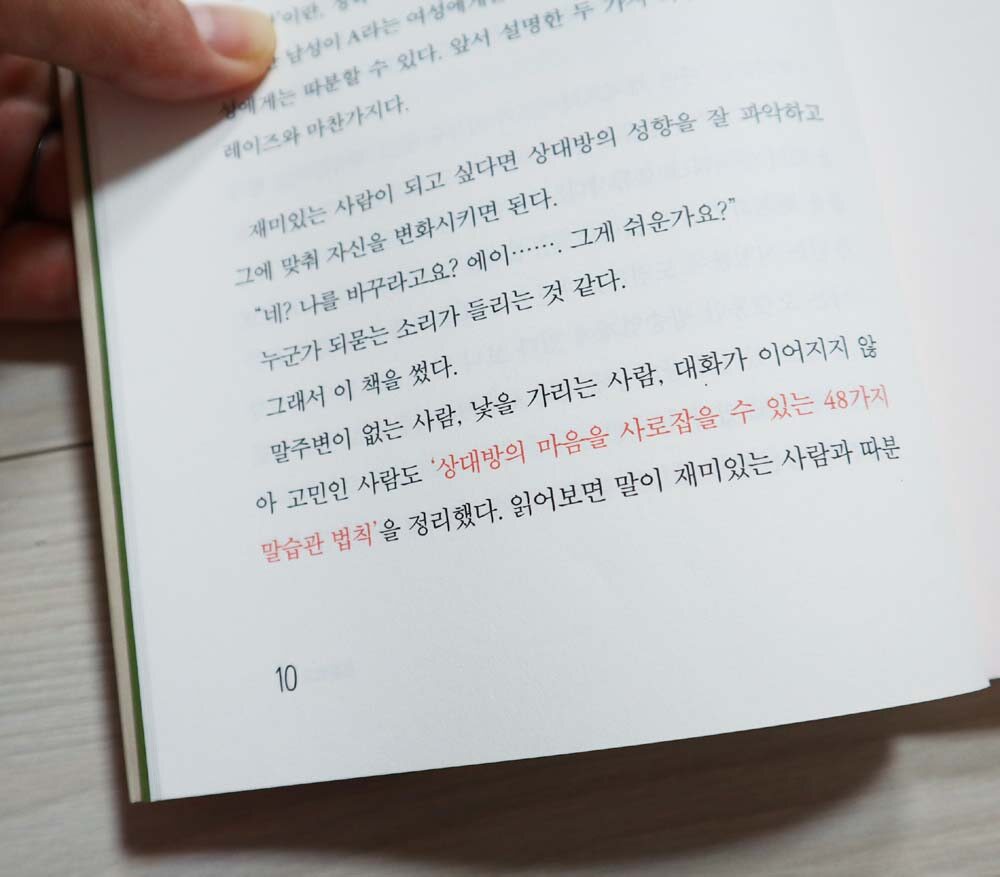 이란,
남성이 A라는 여성에게는
성에게는 따분할 수 있다. 앞서 설명한 두 가지
레이즈와 마찬가지다.
재미있는 사람이 되고 싶다면 상대방의 성향을 잘 파악하고
그에 맞춰 자신을 변화시키면 된다.
“네? 나를 바꾸라고요? 에이……. 그게 쉬운가요?”
누군가 되묻는 소리가 들리는 것 같다.
그래서 이 책을 썼다.
말주변이 없는 사람, 낯을 가리는 사람, 대화가 이어지지 않
아 고민인 사람도 ‘상대방의 마음을 사로잡을 수 있는 48가지
말습관 법칙’을 정리했다. 읽어보면 말이 재미있는 사람과 따분
10